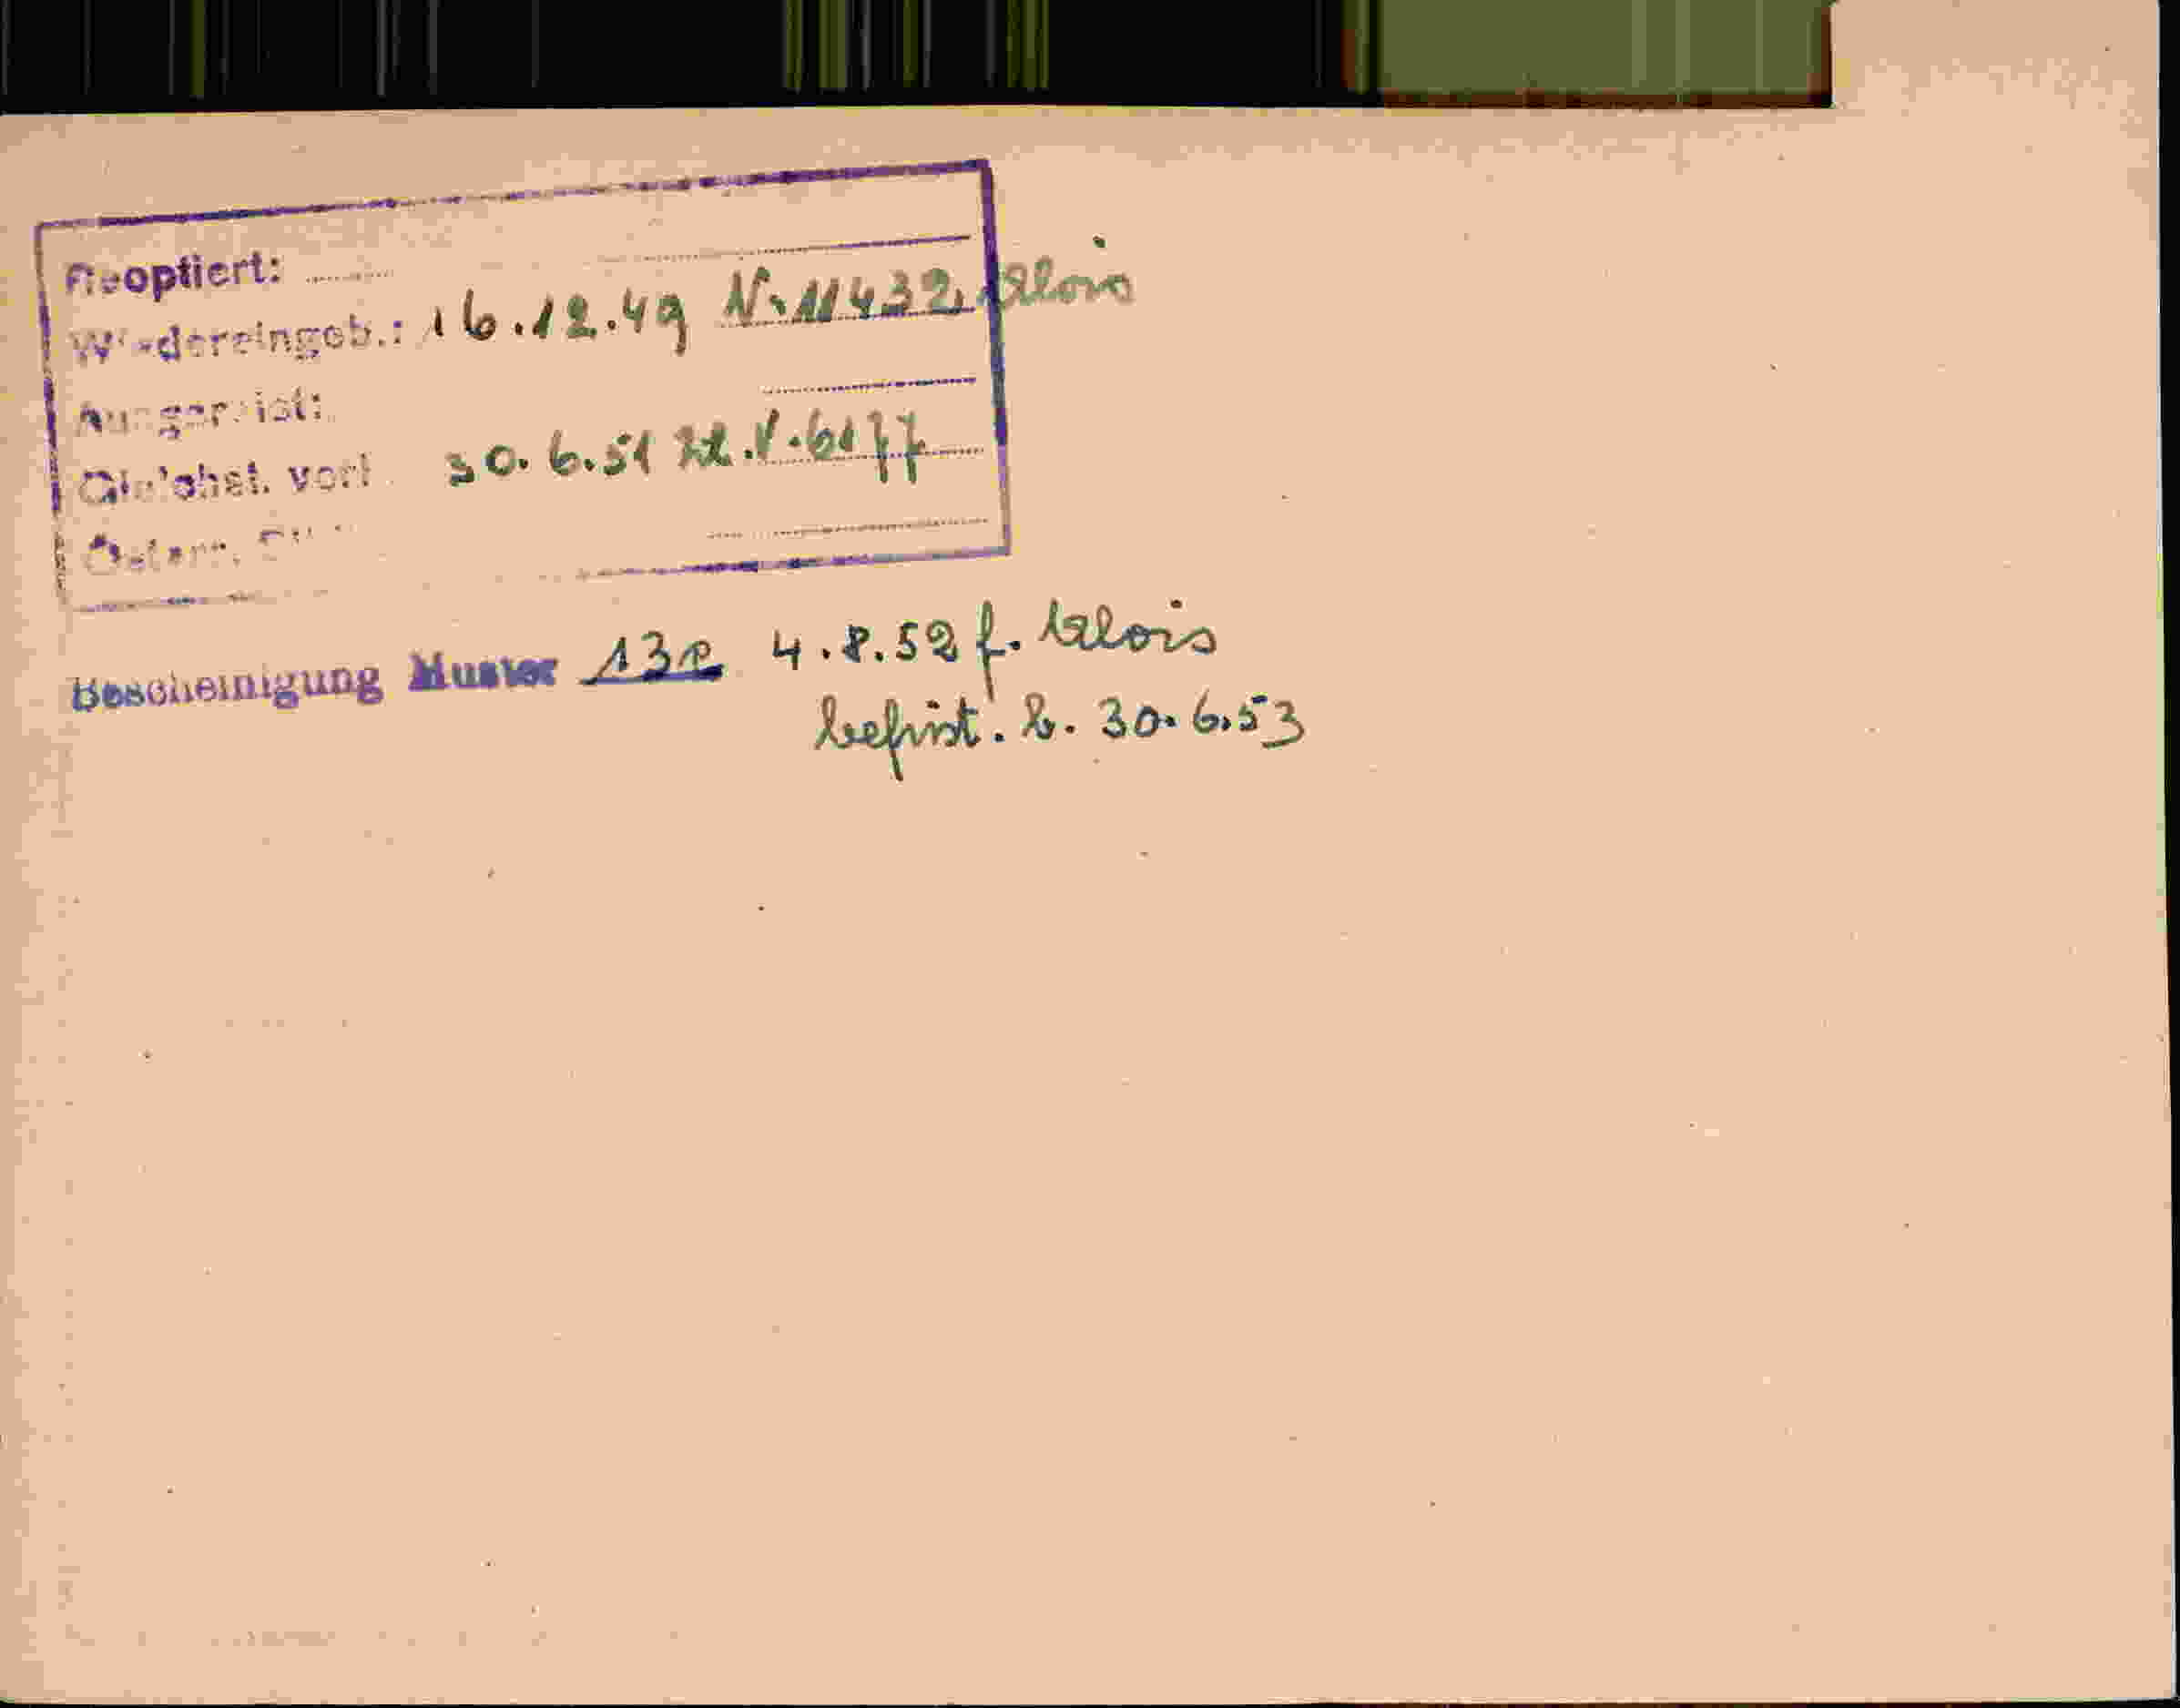 Reoptiert:
Wiedereingeb.: 16.12.49 N. 11432, Alois
Ausgereist:
Gleichst. vorl. 30.6.51 Zl. V. 6177
Österr.
Bescheinigung Muster 13a 4.8.52 f. Alois
befrist. b. 30.6.53